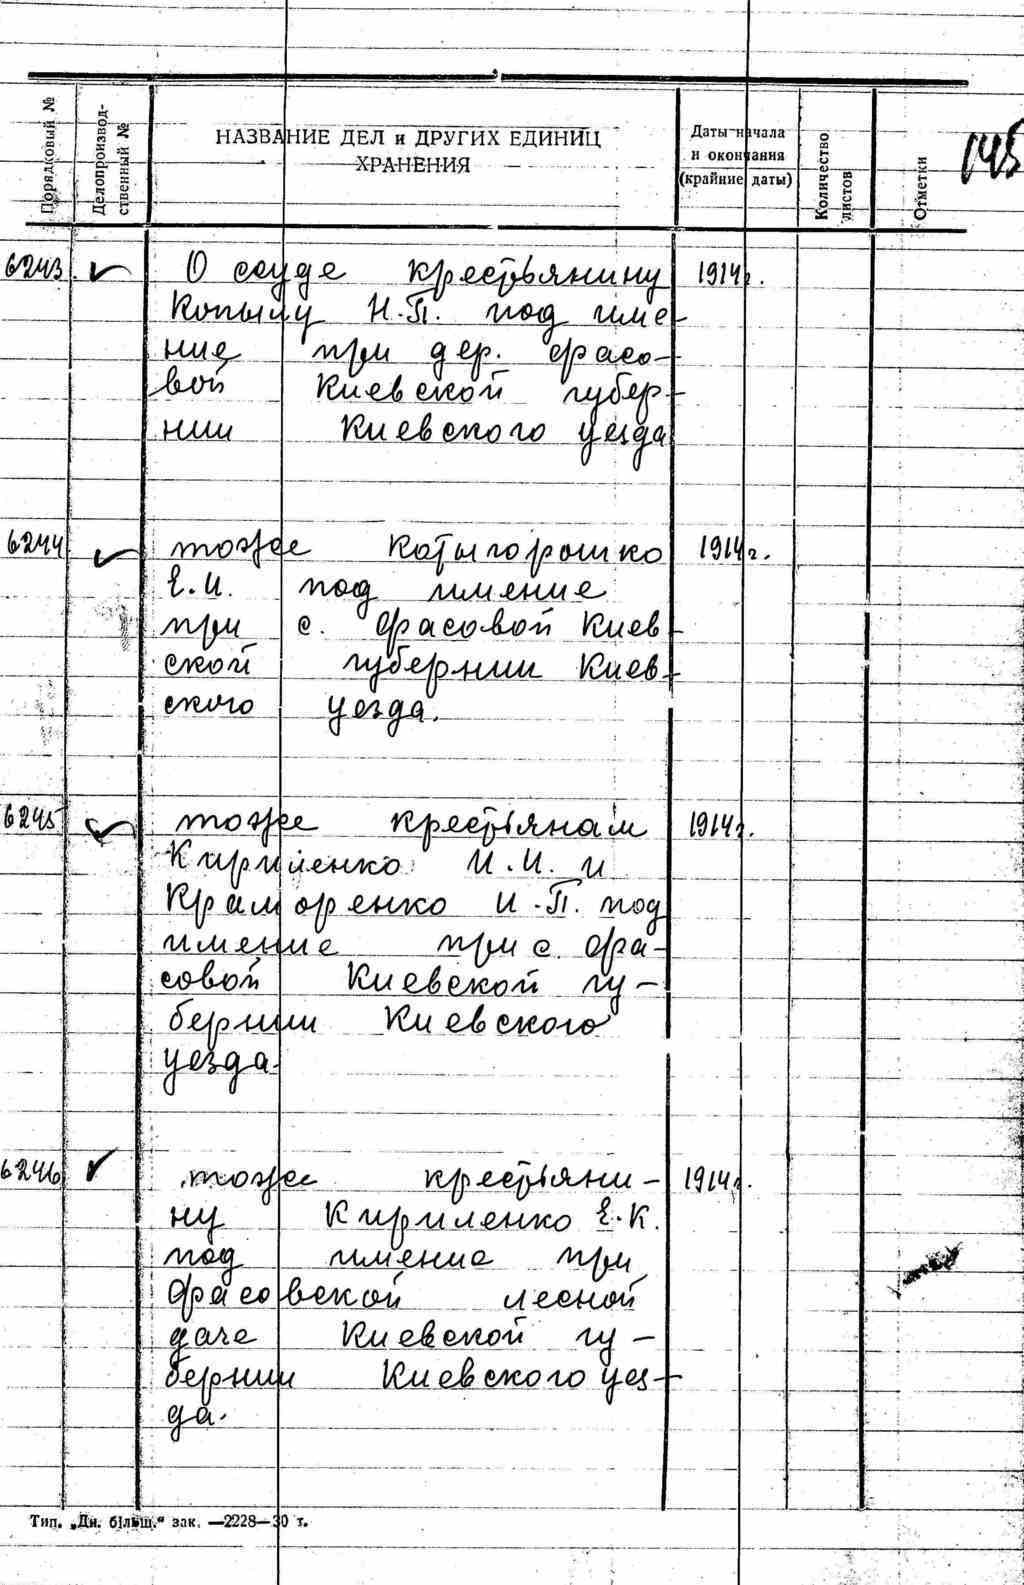 145
Порядковый №
Делопроизвод-
ственный №
НАЗВАНИЕ ДЕЛ и ДРУГИХ ЕДИНИЦ
ХРАНЕНИЯ
Даты начала
и окончания
(крайние даты)
Количество
листов
Отметки
6243 О ссуде крестьянину 1914 г.
Копылу Н.П. под име-
ние при дер. Фасо-
вой Киевской губер-
нии Киевского уезда
6244 тоже Котыгорошко 1914 г.
Е.И. под имение
при с. Фасовой Киев-
ской губернии Киев-
ского уезда.
6245 тоже крестьянам 1914 г.
Кириленко И.И. и
Краморенко И.П. под
имение при с. Фа-
совой Киевской гу-
бернии Киевского
уезда.
6246 тоже крестьяни- 1914 г.
ну Кириленко Е.К.
под имение при
Фасовской лесной
даче Киевской гу-
бернии Киевского уез-
да.
Тип. „Дн. більш.“ зак. —2228—30 т.